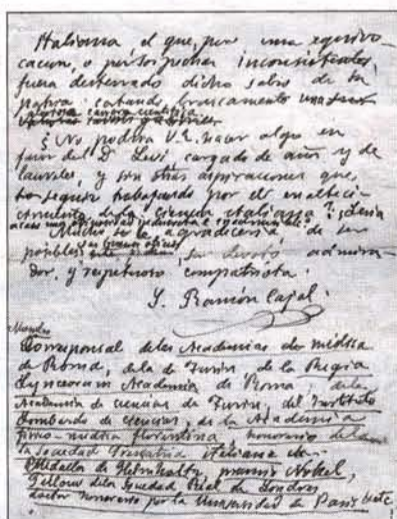 Italiana el que, por una equivo-
cación, o por sospechas inconsistentes,
fuera desterrado dicho sabio de su
patria, cortando bruscamente una
gloriosa carrera científica
¿No podría V.E. hacer algo en
favor del Dr Levi cargado de años y de
laureles, y sin otras aspiraciones que,
conseguir trabajando por el enalteci-
miento de la ciencia italiana?
Mucho le agradecería de ser
posible sus buenos oficios su devoto admira-
dor, y respetuoso compatriota.
S. Ramón Cajal
Corresponsal de las Academias de medicina
de Roma, de la de Turin, de la Regia
Lynceorum Academia de Roma, de la
Academia de ciencias de Turin, del Instituto
Lombardo de ciencias, de la Academia
físico-medica florentina, honorario de la
la Sociedad Italiana de
Medalla de Helmholtz, premio Nobel,
Fellow de la Sociedad Real de Londres
doctor honorario por la Universidad de Paris, etc.